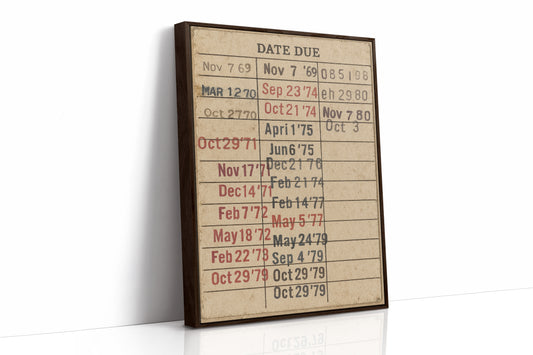 DATE DUE
Nov 7 69 Nov 7 '69 085198
MAR 1270 Sep 23'74 eh 29 80
Oct 2770 Oct 21'74 Nov 7 80
Apri 1'75 Oct 3
Oct 29'71 Jun 6'75
Nov 17'71 Dec 21 76
Dec 14'71 Feb 21 74
Feb 7'72 Feb 14'77
May 5'77
May 18'72 May 24'79
Feb 22'73 Sep 4 '79
Oct 29'79 Oct 29'79
Oct 29'79